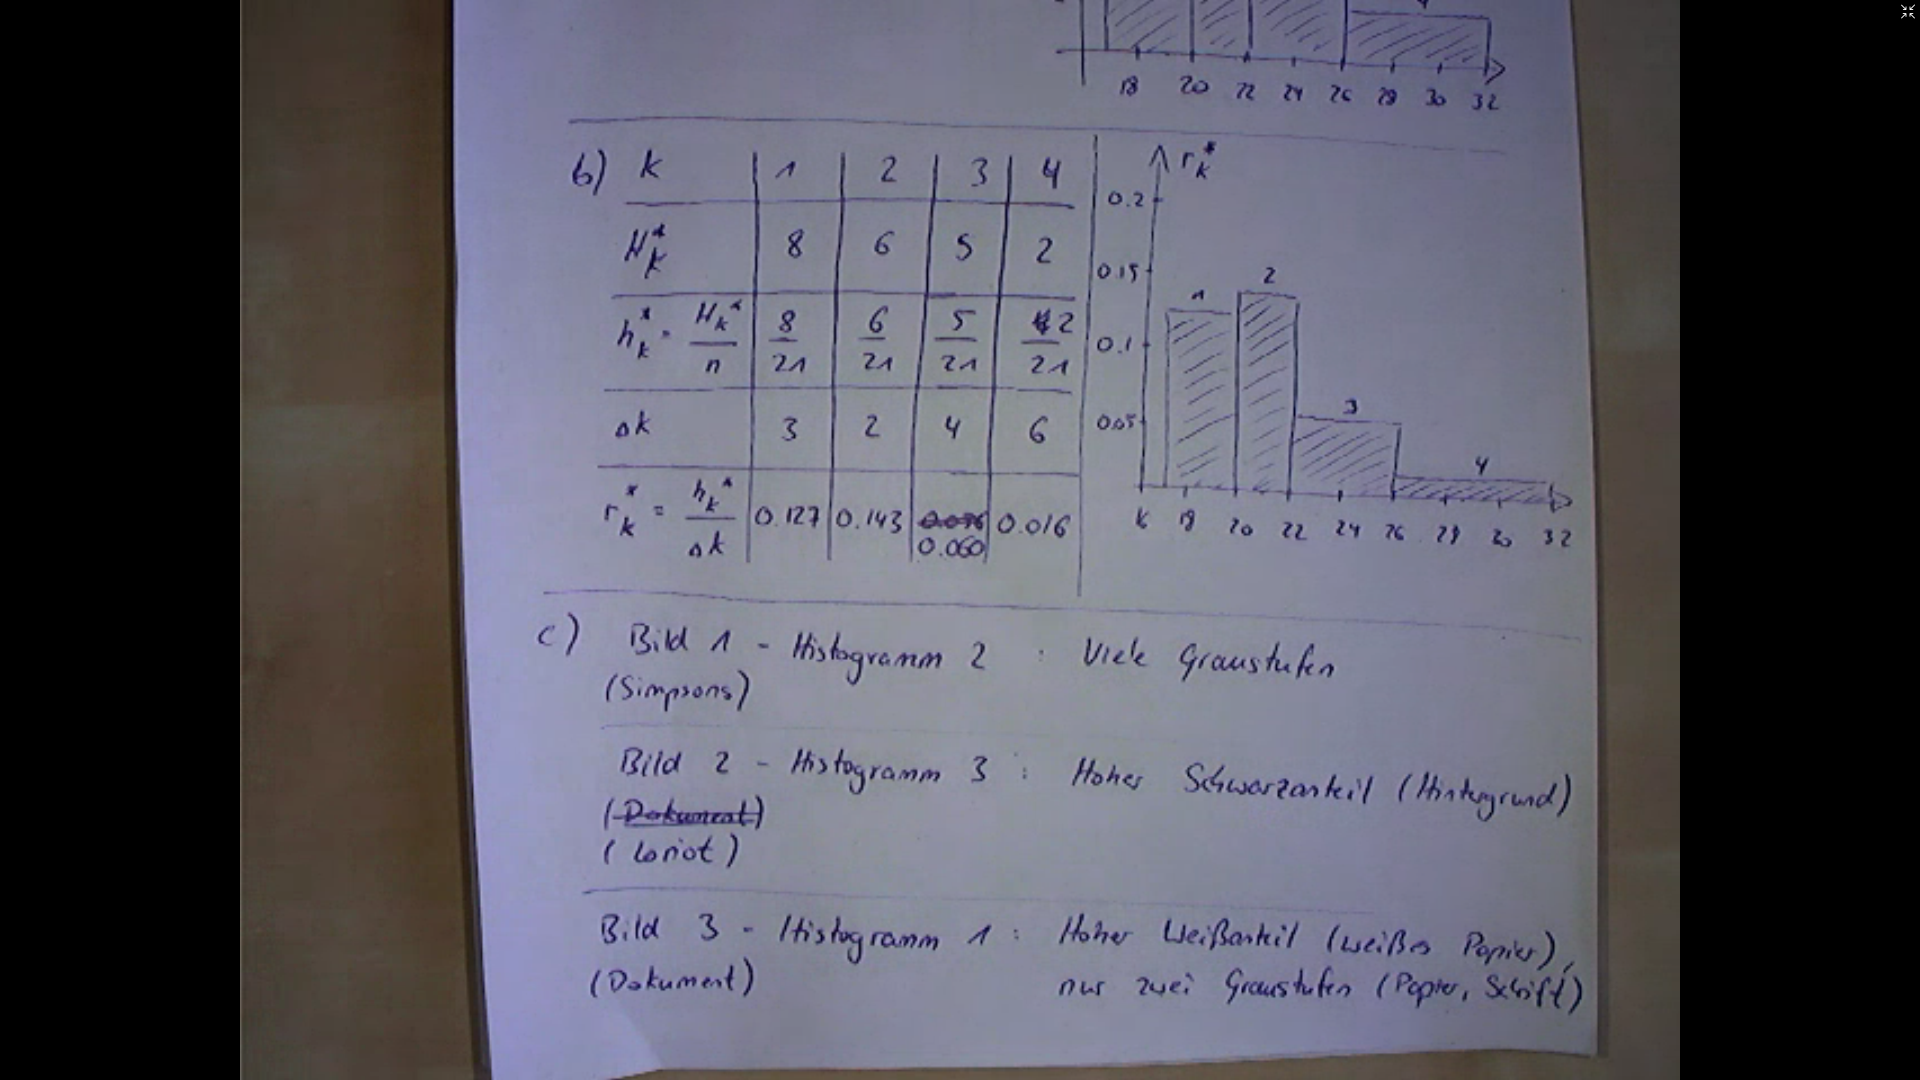 18 20 22 24 26 28 30 32
b) k 1 2 3 4
H*k 8 6 5 2
h*k = Hk*/n 8/21 6/21 5/21 2/21
Δk 3 2 4 6
r*k = hk*/Δk 0.127 0.143 0.016
0.060
rk*
0.2
0.15
0.1
0.05
1 2 3 4
18 20 22 24 26 28 30 32
c) Bild 1 - Histogramm 2 : Viele Graustufen
(Simpsons)
Bild 2 - Histogramm 3 : Hoher Schwarzanteil (Hintergrund)
(Dokument)
(Loriot)
Bild 3 - Histogramm 1 : Hoher Weißanteil (weißes Papier),
(Dokument) nur zwei Graustufen (Papier, Schrift)